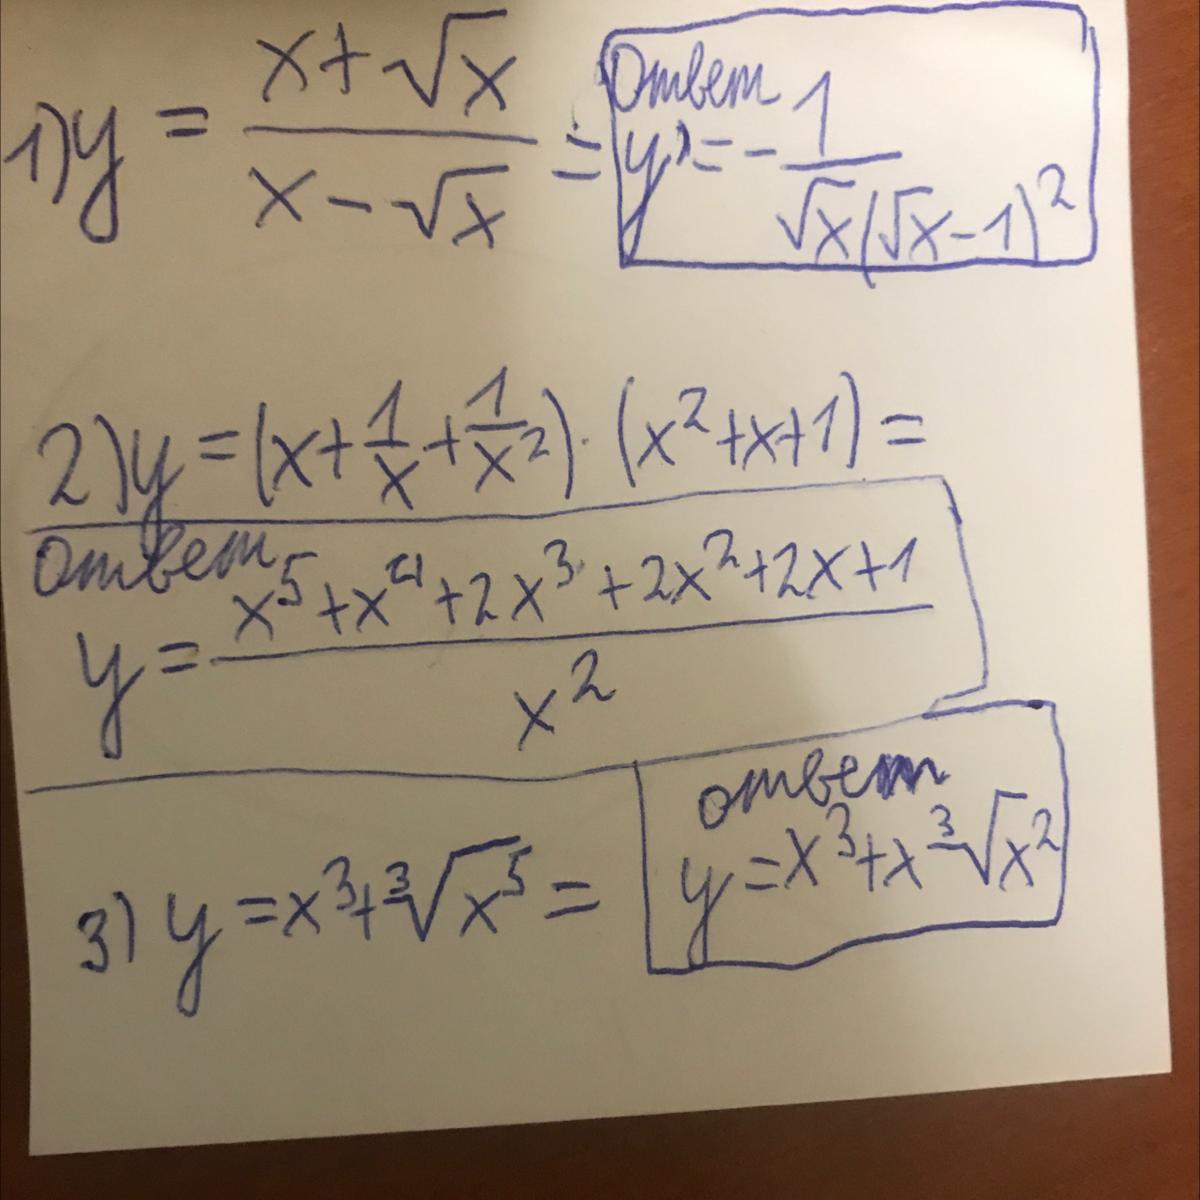 1) y = (x+√x)/(x-√x) =
Ответ
y' = - 1/(√x(√x-1)²
2) y = (x + 1/x + 1/x²) · (x²+x+1) =
Ответ
y = (x⁵+x⁴+2x³+2x²+2x+1)/x²
3) y = x³+³√x⁵ =
ответ
y = x³+x ³√x²